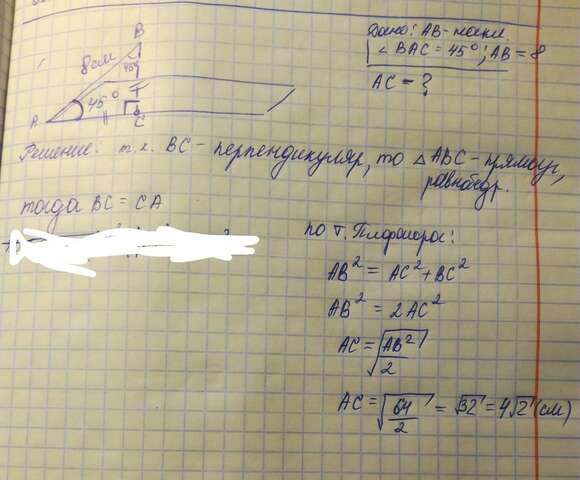 B
8 см
45°
45°
A
C
Дано: AB-накл.
∠BAC = 45°; AB = 8
AC - ?
Решение: т.к. BC - перпендикуляр, то △ABC - прямоуг,
равнобедр.
тогда BC = CA
по т. Пифагора:
AB² = AC² + BC²
AB² = 2AC²
AC = √(AB²/2)
AC = √(64/2) = √32 = 4√2 (см)